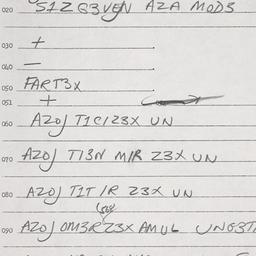 020 S1Z G3VEN AZA MOD3
030 +
040 —
050 FART3X
051 +
060 AZOJ T1C1Z3X UN
070 AZOJ T13N M/R Z3X UN
080 AZOJ T1T 1R Z3X UN
090 AZOJ OM3R Z3X AMUL UNG3T